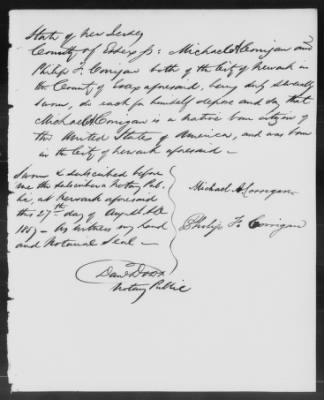 State of New Jersey
County of Essex ss: Michael A Corrigan and
Philip F. Corrigan both of the City of Newark in
the County of Essex aforesaid, being duly severally
sworn, do each for himself depose and say that
Michael A Corrigan is a native born citizen of
the United States of America, and was born
in the City of Newark aforesaid —
Sworn & subscribed before
me the subscriber a Notary Pub-
lic, at Newark aforesaid
this 27th day of August AD
18 — As witness my hand
and Notarial Seal —
Michael A. Corrigan
Philip F. Corrigan
Notary Public